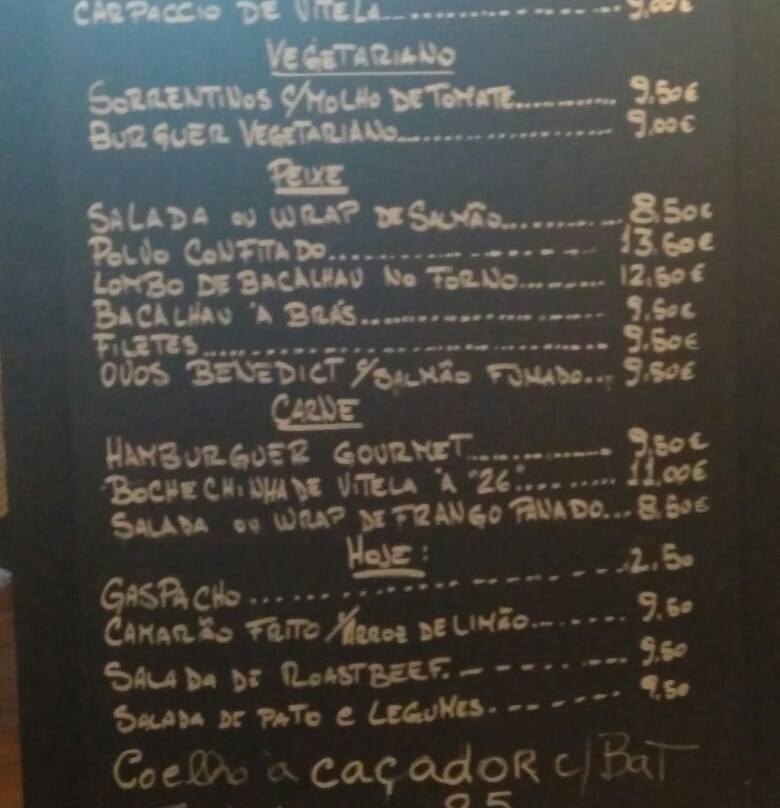 CARPACCIO DE VITELA 9,00€
VEGETARIANO
SORRENTINOS C/MOLHO DE TOMATE 9,50€
BURGUER VEGETARIANO 9,00€
PEIXE
SALADA OU WRAP DE SALMÃO 8,50€
POLVO CONFITADO 13,50€
LOMBO DE BACALHAU NO FORNO 12,50€
BACALHAU À BRÁS 9,50€
FILETES 9,50€
OVOS BENEDICT C/SALMÃO FUMADO... 9,50€
CARNE
HAMBURGUER GOURMET 9,50€
BOCHECHINHA DE VITELA À "26" 11,00€
SALADA OU WRAP DE FRANGO PANADO... 8,50€
HOJE:
GASPACHO 2.50
CAMARÃO FRITO C/ARROZ DE LIMÃO 9.50
SALADA DE ROASTBEEF 9.50
SALADA DE PATO E LEGUMES 9.50
Coelho à caçador c/ Bat